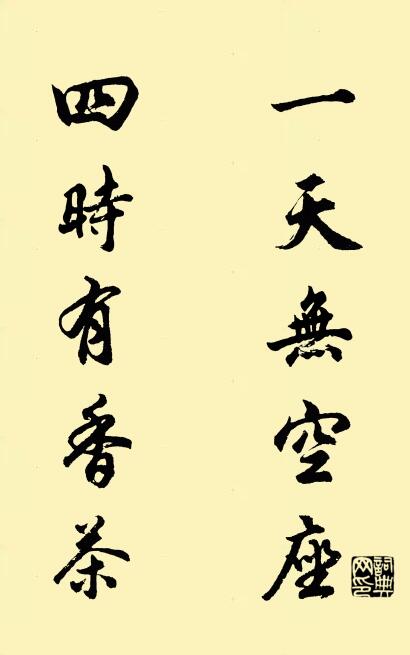 一天無空座
四時有香茶
詞典網印